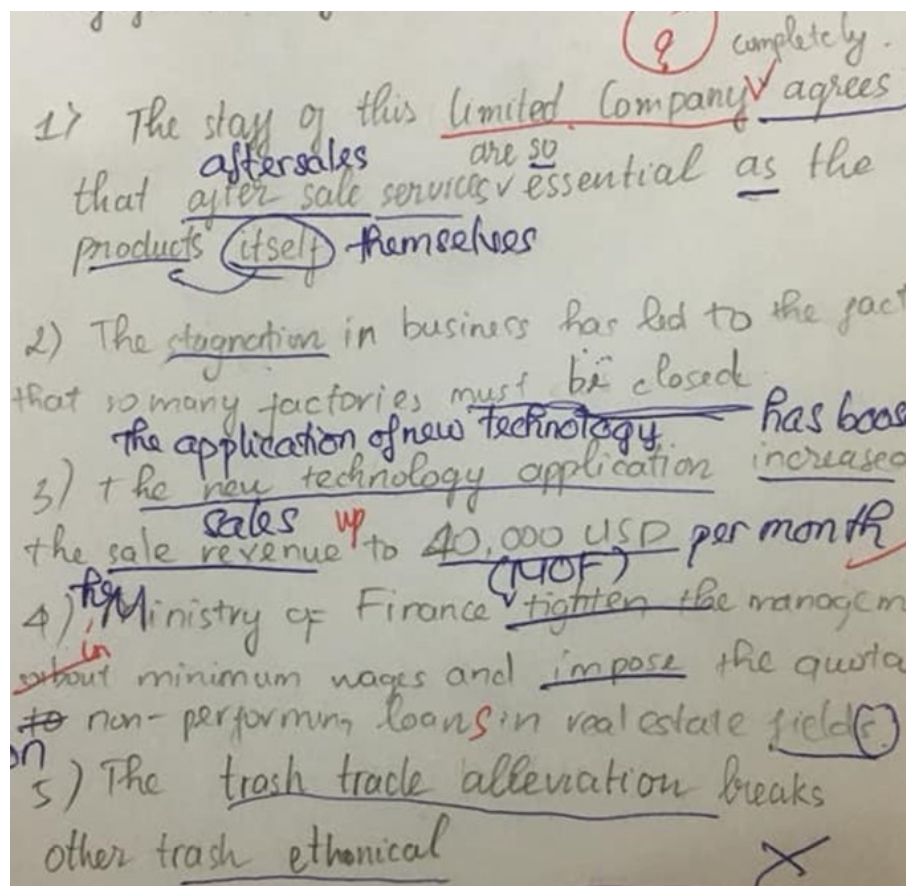 completely.
1> The staff of this limited Company agrees
aftersales are so
that after sale services essential as the
products itself themselves
2) The stagnation in business has led to the fact
that so many factories must be closed
the application of new technology has boos
3) the new technology application increased
sales up
the sale revenue to 40,000 USD per month
(MOF)
4) The Ministry of Finance tighten the managem
in
about minimum wages and impose the quota
to non-performing loans in real estate fields.
on
5) The trash trade alleviation breaks
other trash ethonical